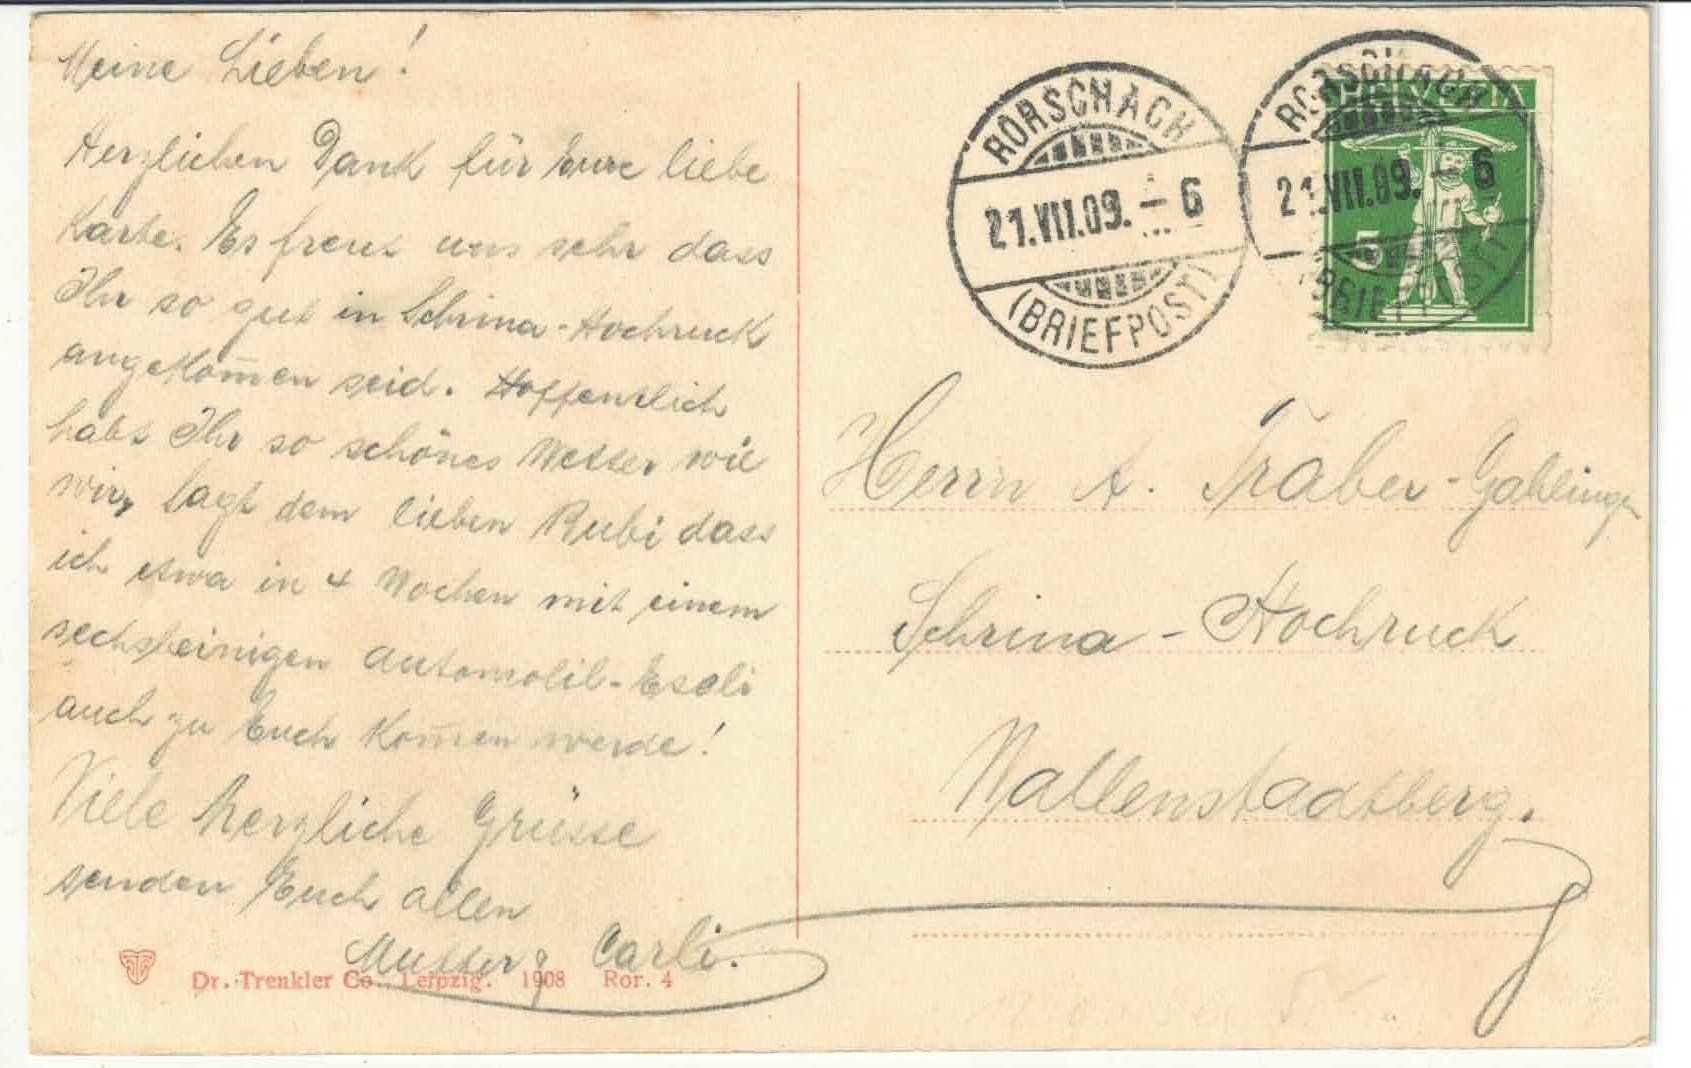 Meine Lieben!
Herzlichen Dank für Eure liebe
Karte. Es freut uns sehr dass
Ihr so gut in Schrina-Hochruck
angekom̄en seid. Hoffentlich
habt Ihr so schönes Wetter wie
wir, sagt dem lieben Rubi dass
ich etwa in 4 Wochen mit einem
sechsbeinigen Automobil-Eseli
auch zu Euch kom̄en werde!
Viele herzliche Grüsse
senden Euch allen
Mutter & Carli.
Dr. Trenkler Co. Leipzig. 1908 Ror. 4
RORSCHACH
21.VII.09. – 6
(BRIEFPOST)
RORSCHACH
21.VII.09. – 6
(BRIEFPOST)
HELVETIA
5
Herrn A. Traber-Gahlinger
Schrina-Hochruck
Wallenstadtberg.